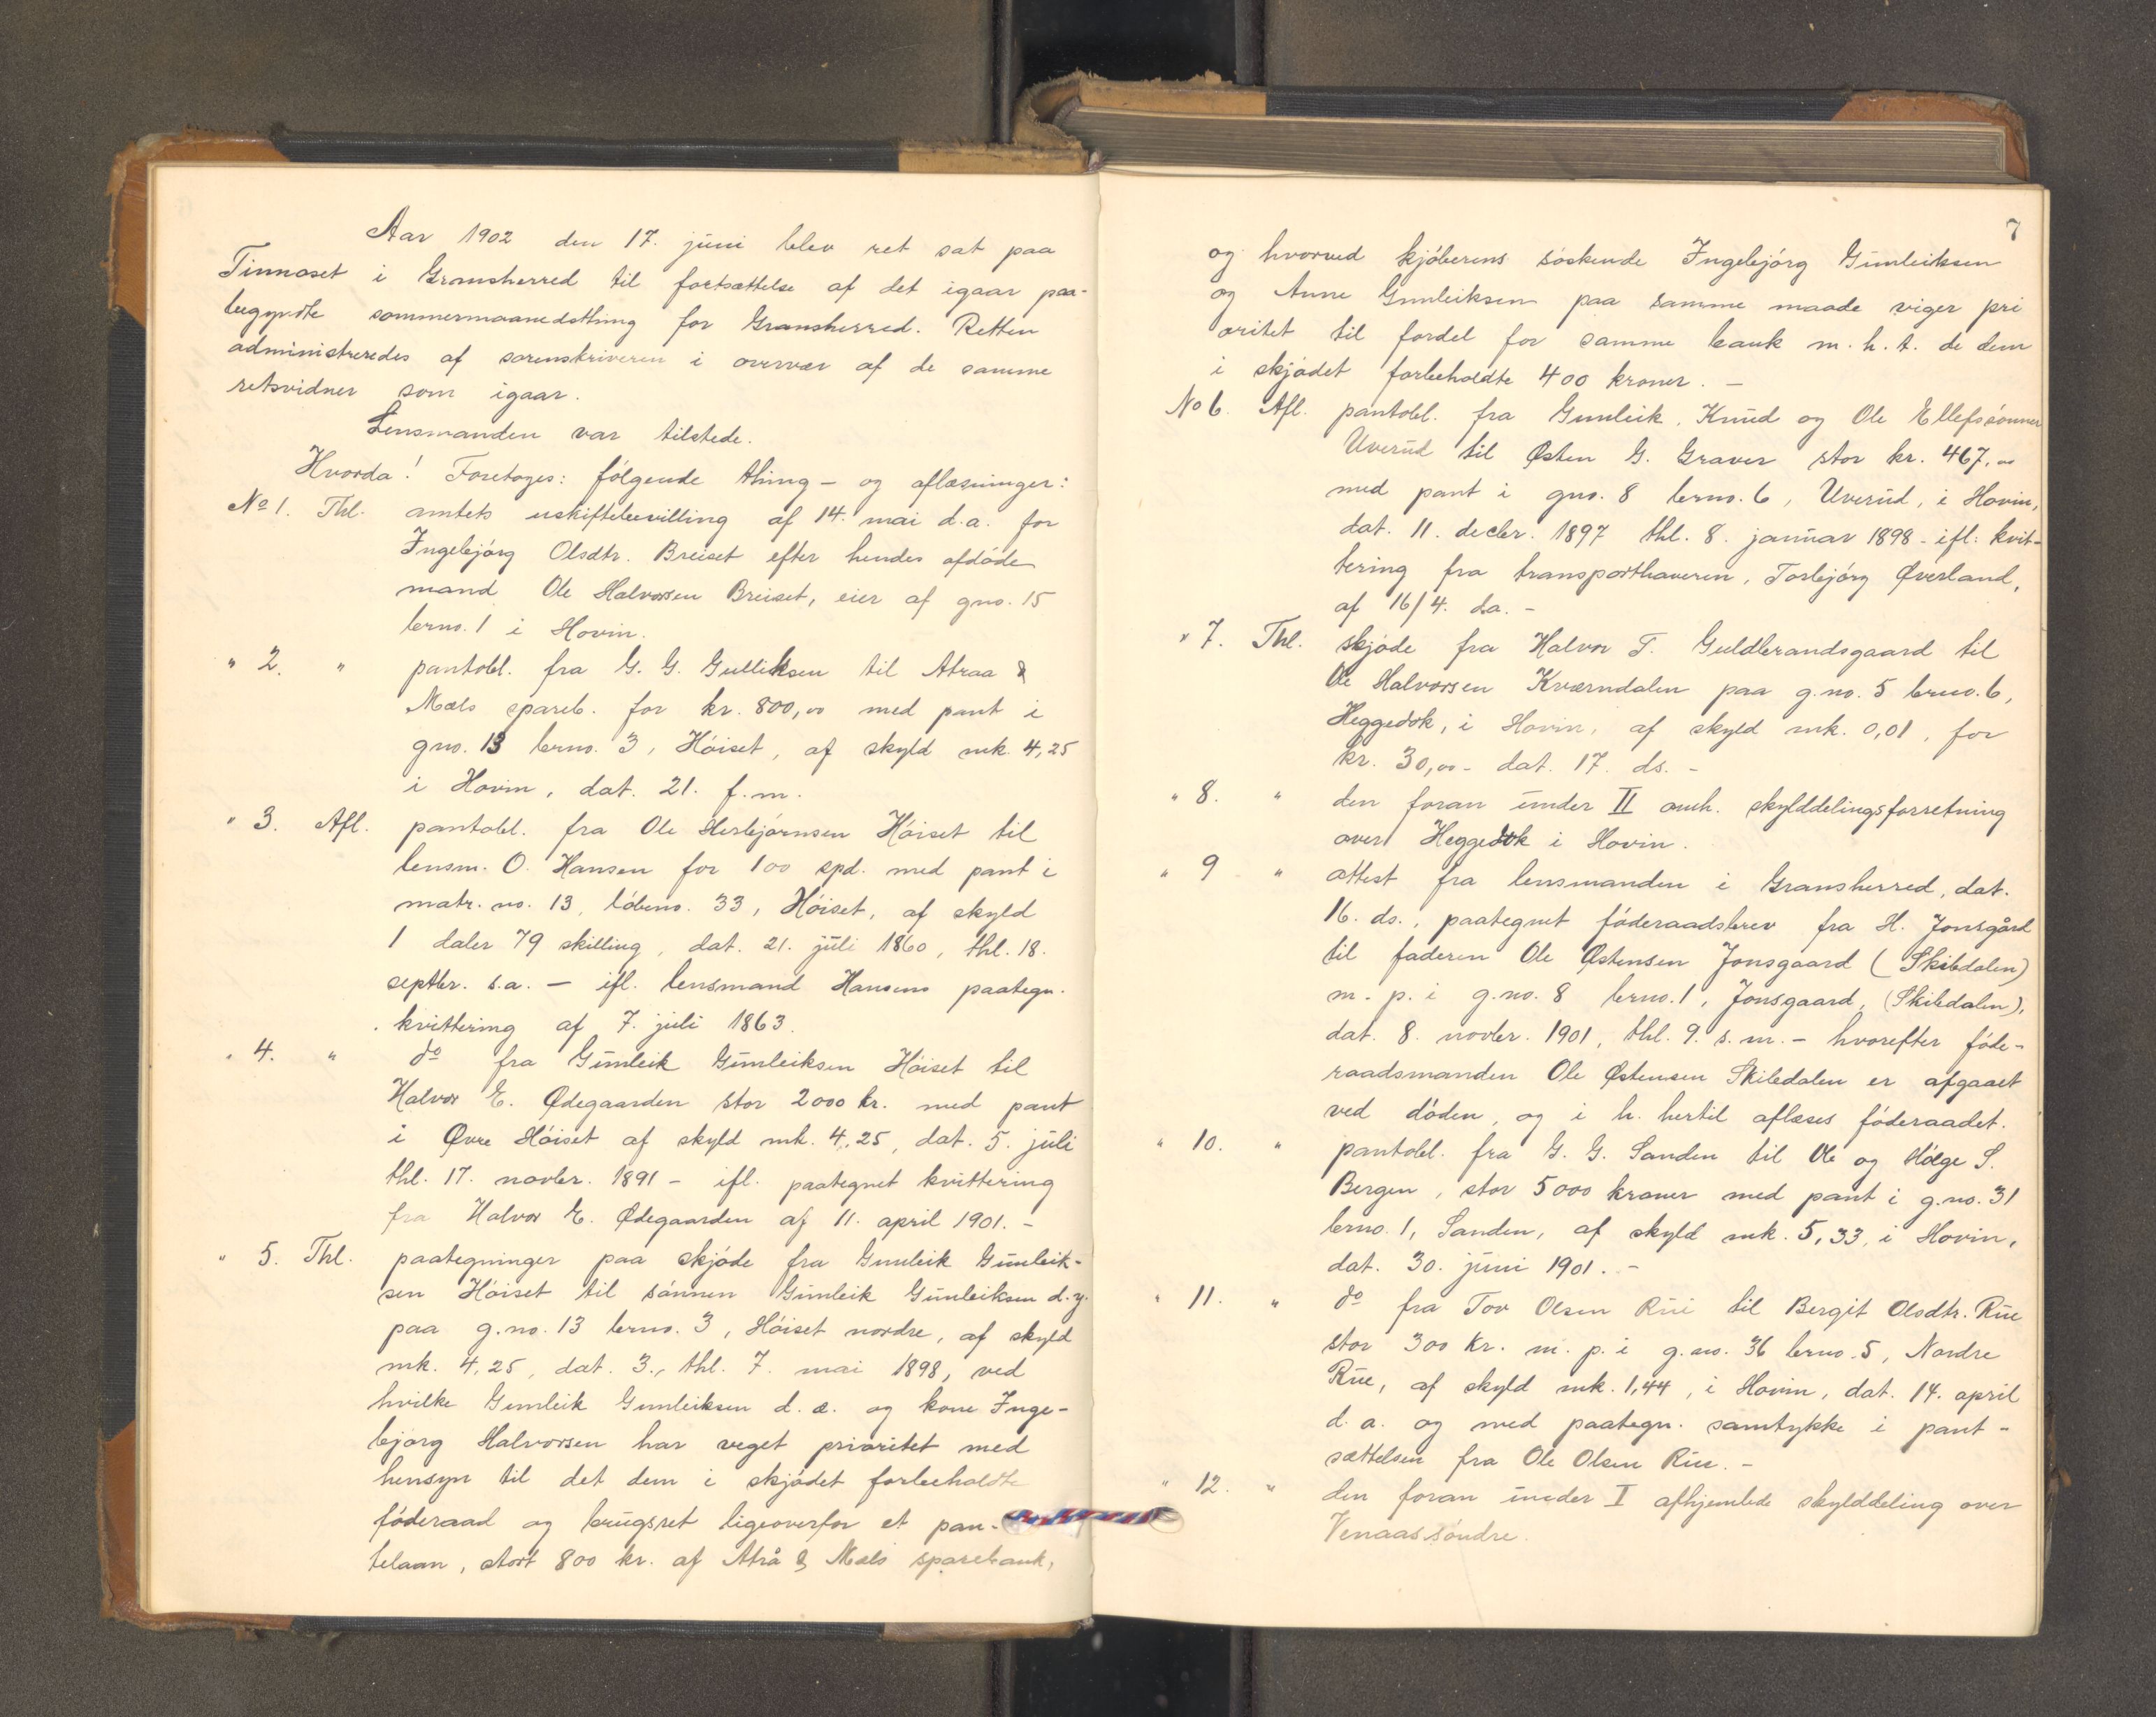 Aar 1902 den 17. juni blev ret sat paa
Tinnoset i Gransherred til fortsættelse af det igaar paa-
begyndte sommermaanedsthing for Gransherred. Retten
administreredes af sorenskriveren i overvær af de samme
retsvidner som igaar.
Lensmanden var tilstede.
Hvorda! Foretoges: følgende thing- og aflæsninger:
No 1. Thl. amtets uskiftebevilling af 14. mai d.a. for
Ingebjørg Olsdtr. Breiset efter hendes afdøde
mand Ole Halvorsen Breiset, eier af gno. 15
brno. 1 i Hovin.
" 2. " pantobl. fra G. G. Gulliksen til Atraa &
Mæls spareb. for kr. 800,00 med pant i
gno. 13 brno. 3, Høiset, af skyld mk. 4,25
i Hovin, dat. 21. f.m.
" 3. Afl. pantobl. fra Ole Herbjørnsen Høiset til
lensm. O. Hansen for 100 spd. med pant i
matr. no. 13, løbeno. 33, Høiset, af skyld
1 daler 79 skilling, dat. 21. juli 1860, thl. 18.
septbr. s.a. — ifl. lensmand Hansens paategn.
kvittering af 7. juli 1863.
" 4. " do fra Gunleik Gunleiksen Høiset til
Halvor E. Ødegaarden stor 2000 kr. med pant
i Øvre Høiset af skyld mk. 4,25, dat. 5. juli
thl. 17. novbr. 1891 - ifl. paategnet kvittering
fra Halvor E. Ødegaarden af 11. april 1901. -
" 5. Thl. paategninger paa skjøde fra Gunleik Gunleik-
sen Høiset til sønnen Gunleik Gunleiksen d.y.
paa g.no. 13 brno. 3, Høiset nordre, af skyld
mk. 4,25, dat. 3., thl. 7. mai 1898, ved
hvilke Gunleik Gunleiksen d. æ. og kone Inge-
bjørg Halvorsen har veget prioritet med
hensyn til det dem i skjødet forbeholdte
føderaad og brugsret ligeoverfor et pan-
telaan, stort 800 kr. af Atrå & Mæls sparebank,
7
og hvorved kjøberens søskende Ingebjørg Gunleiksen
og Anne Gunleiksen paa samme maade viger pri
oritet til fordel for samme bank m. h. t. de dem
i skjødet forbeholdte 400 kroner. —
No 6. Afl. pantobl. fra Gunleik, Knud og Ole Ellefssønner
Uverud til Østen G. Graver stor kr. 467,00
med pant i gno. 8 brno. 6, Uverud, i Hovin,
dat. 11. decbr. 1897 thl. 8. januar 1898 - ifl. kvit-
tering fra transporthaveren, Torbjørg Øverland,
af 16/4. d.a. -
" 7. Thl. skjøde fra Halvor T. Guldbrandsgaard til
Ole Halvorsen Kværndalen paa g.no. 5 brno. 6,
Heggedok, i Hovin, af skyld mk. 0,01, for
kr. 30,00 - dat. 17. ds. -
" 8. " den foran under II omh. skylddelingsforretning
over Heggedok i Hovin.
" 9 " attest fra lensmanden i Gransherred, dat.
16. ds., paategnet føderaadsbrev fra H. Jonsgård
til faderen Ole Østensen Jonsgaard (Skibdalen)
m. p. i g.no. 8 brno. 1, Jonsgaard, (Skibdalen),
dat. 8. novbr. 1901, thl. 9. s. m. - hvorefter føde-
raadsmanden Ole Østensen Skibdalen er afgaaet
ved døden, og i h. hertil aflæses føderaadet.
" 10. " pantobl. fra G. G. Sanden til Ole og Hølge S.
Bergen, stor 5000 kroner med pant i g.no. 31
brno. 1, Sanden, af skyld mk. 5,33, i Hovin,
dat. 30. juni 1901. -
" 11. " do fra Tov Olsen Rui til Bergit Olsdtr. Rue
stor 300 kr. m. p. i g.no. 36 brno. 5, Nordre
Rue, af skyld mk. 1,44, i Hovin, dat. 14. april
d. a. og med paategn. samtykke i pant-
sættelsen fra Ole Olsen Rue. -
" 12. " den foran under I afhjemlede skylddeling over
Venaas søndre.